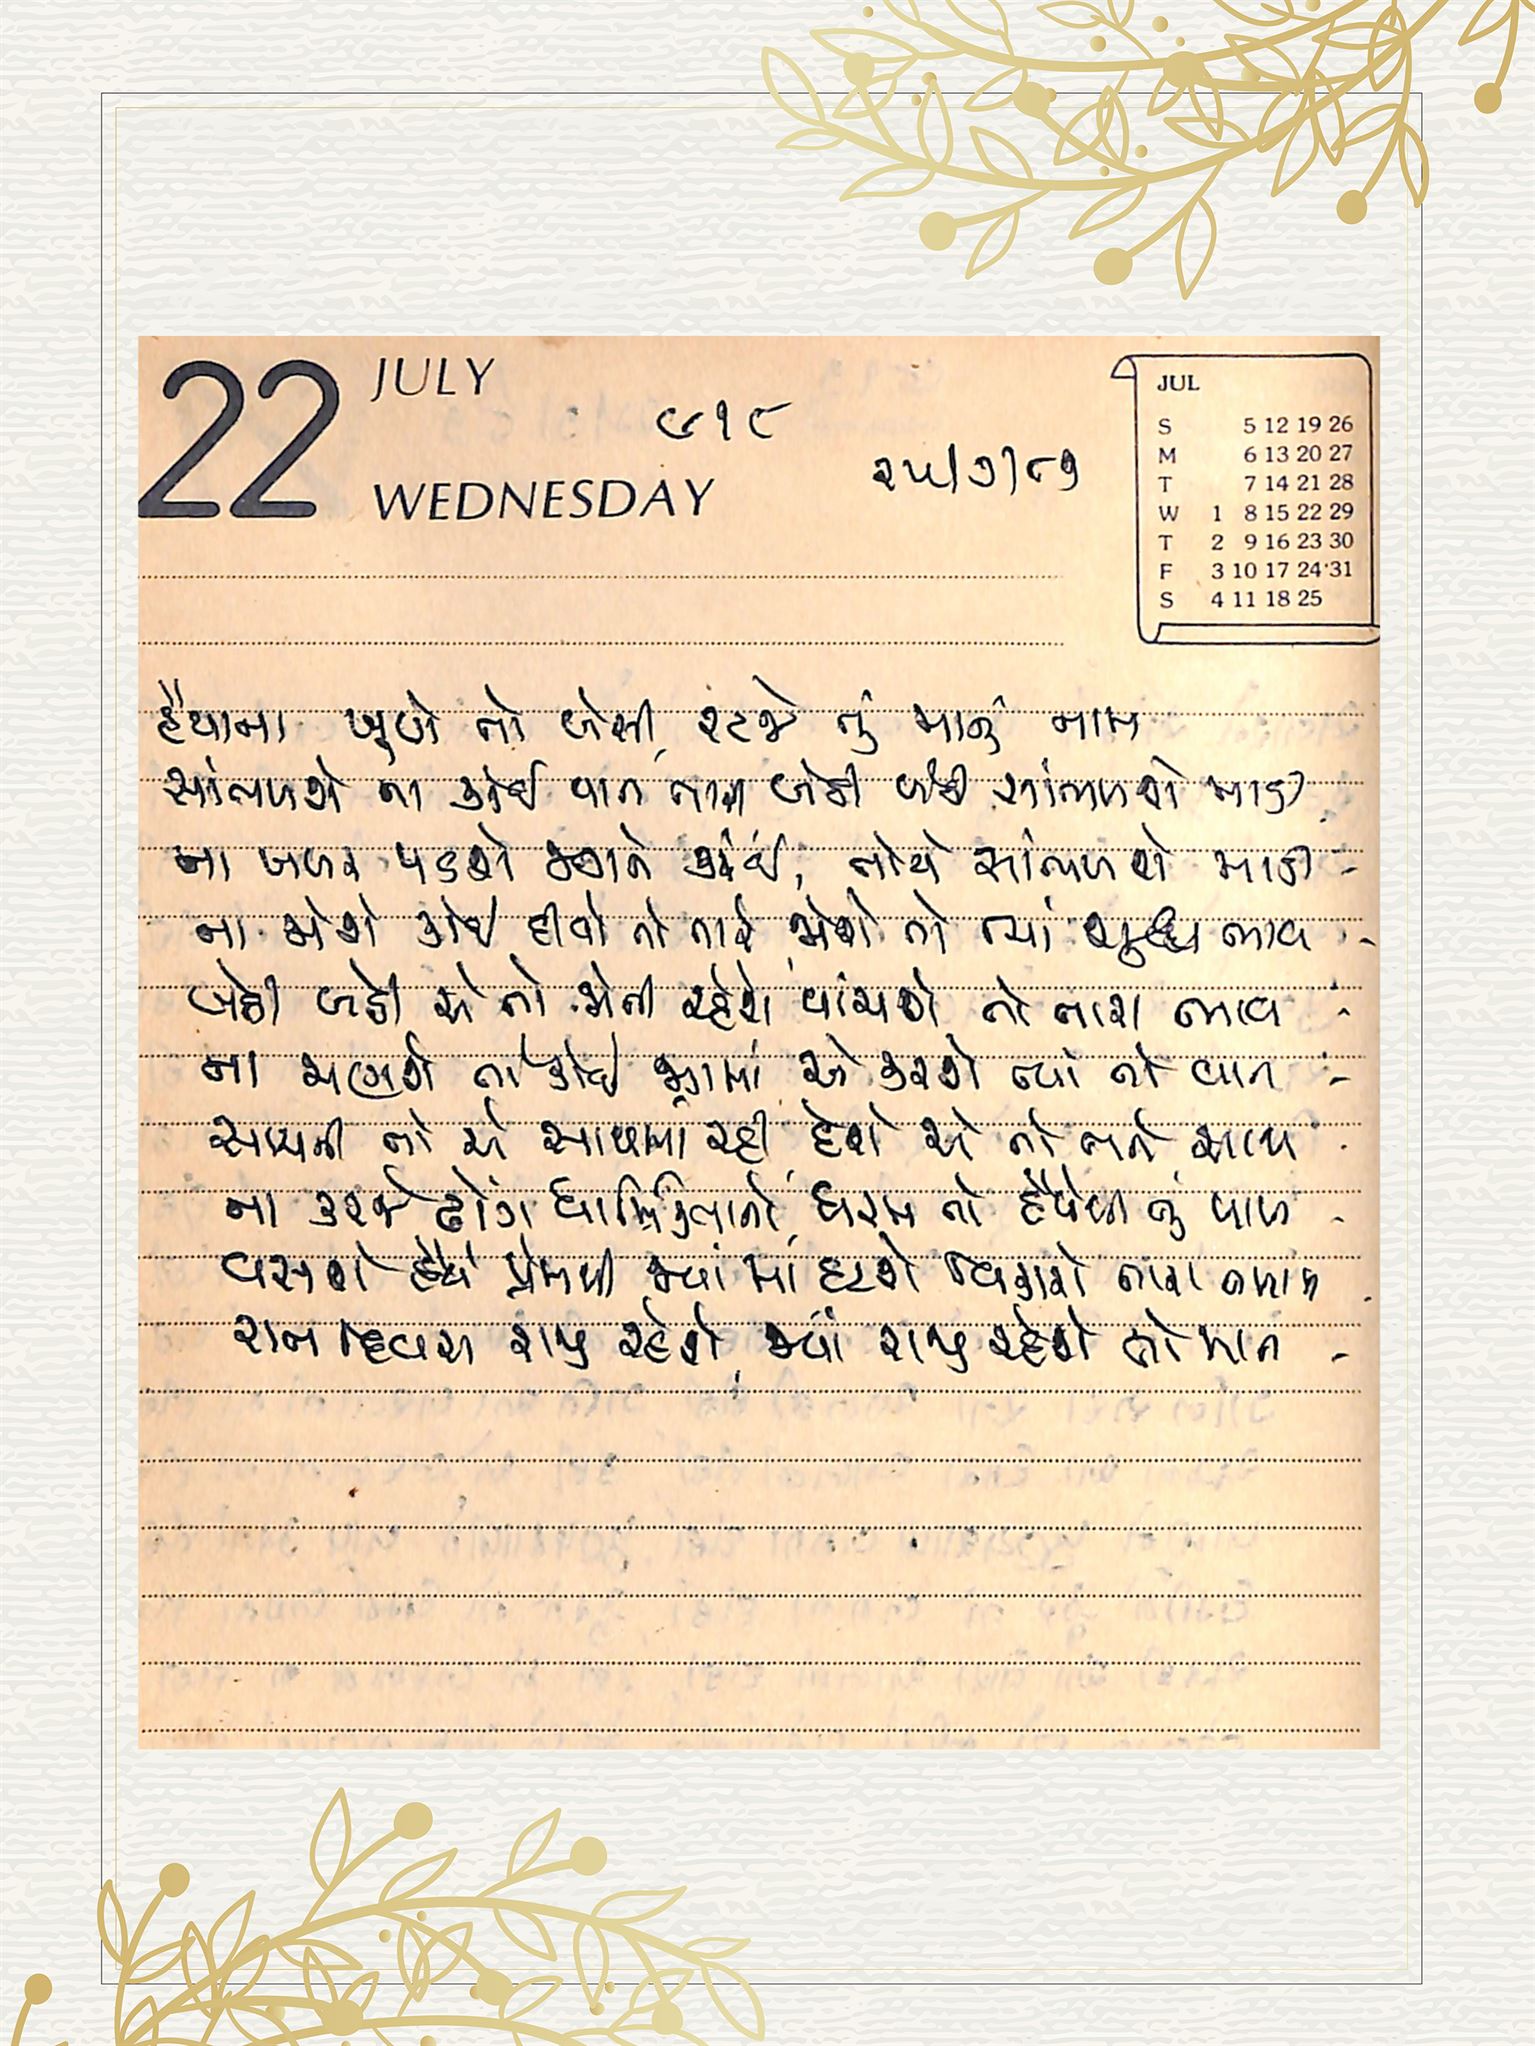 22 JULY
WEDNESDAY
૯૧૮
૨૫/૭/૮૭
JUL
S 5 12 19 26
M 6 13 20 27
T 7 14 21 28
W 1 8 15 22 29
T 2 9 16 23 30
F 3 10 17 24 31
S 4 11 18 25
હૈયાના ખૂણે તો બેસી, રટજે તું માનું નામ
સાંભળશે ના કોઈ વાત તારી બેઠી બેઠી સાંભળશે માડી
ના ખબર પડશે જગને કાંઈ, તોયે સાંભળશે માડી -
ના જોશે કોઈ દીવો તો તારે, જોશે તો ત્યાં શુદ્ધ ભાવ -
બેઠી બેઠી એ તો જોતી રહેશે વાંચશે તો તારા ભાવ -
ના મળશે તો કોઈ જગમાં એ કરશે ત્યાં તો વાત -
સાથી તો એ સાથમાં રહી દેશે એ તો તને સાથ
ના કરજે ઢોંગ ધાર્મિકતાનો, ધરમ તો હૈયેથી તું પાળ -
વસશે હૈયે પ્રેમથી જ્યાં માં હટશે વિકારો તારા તમામ
રાત દિવસ રાજી રહેશે, જ્યાં રાજી રહેશે તો માત -